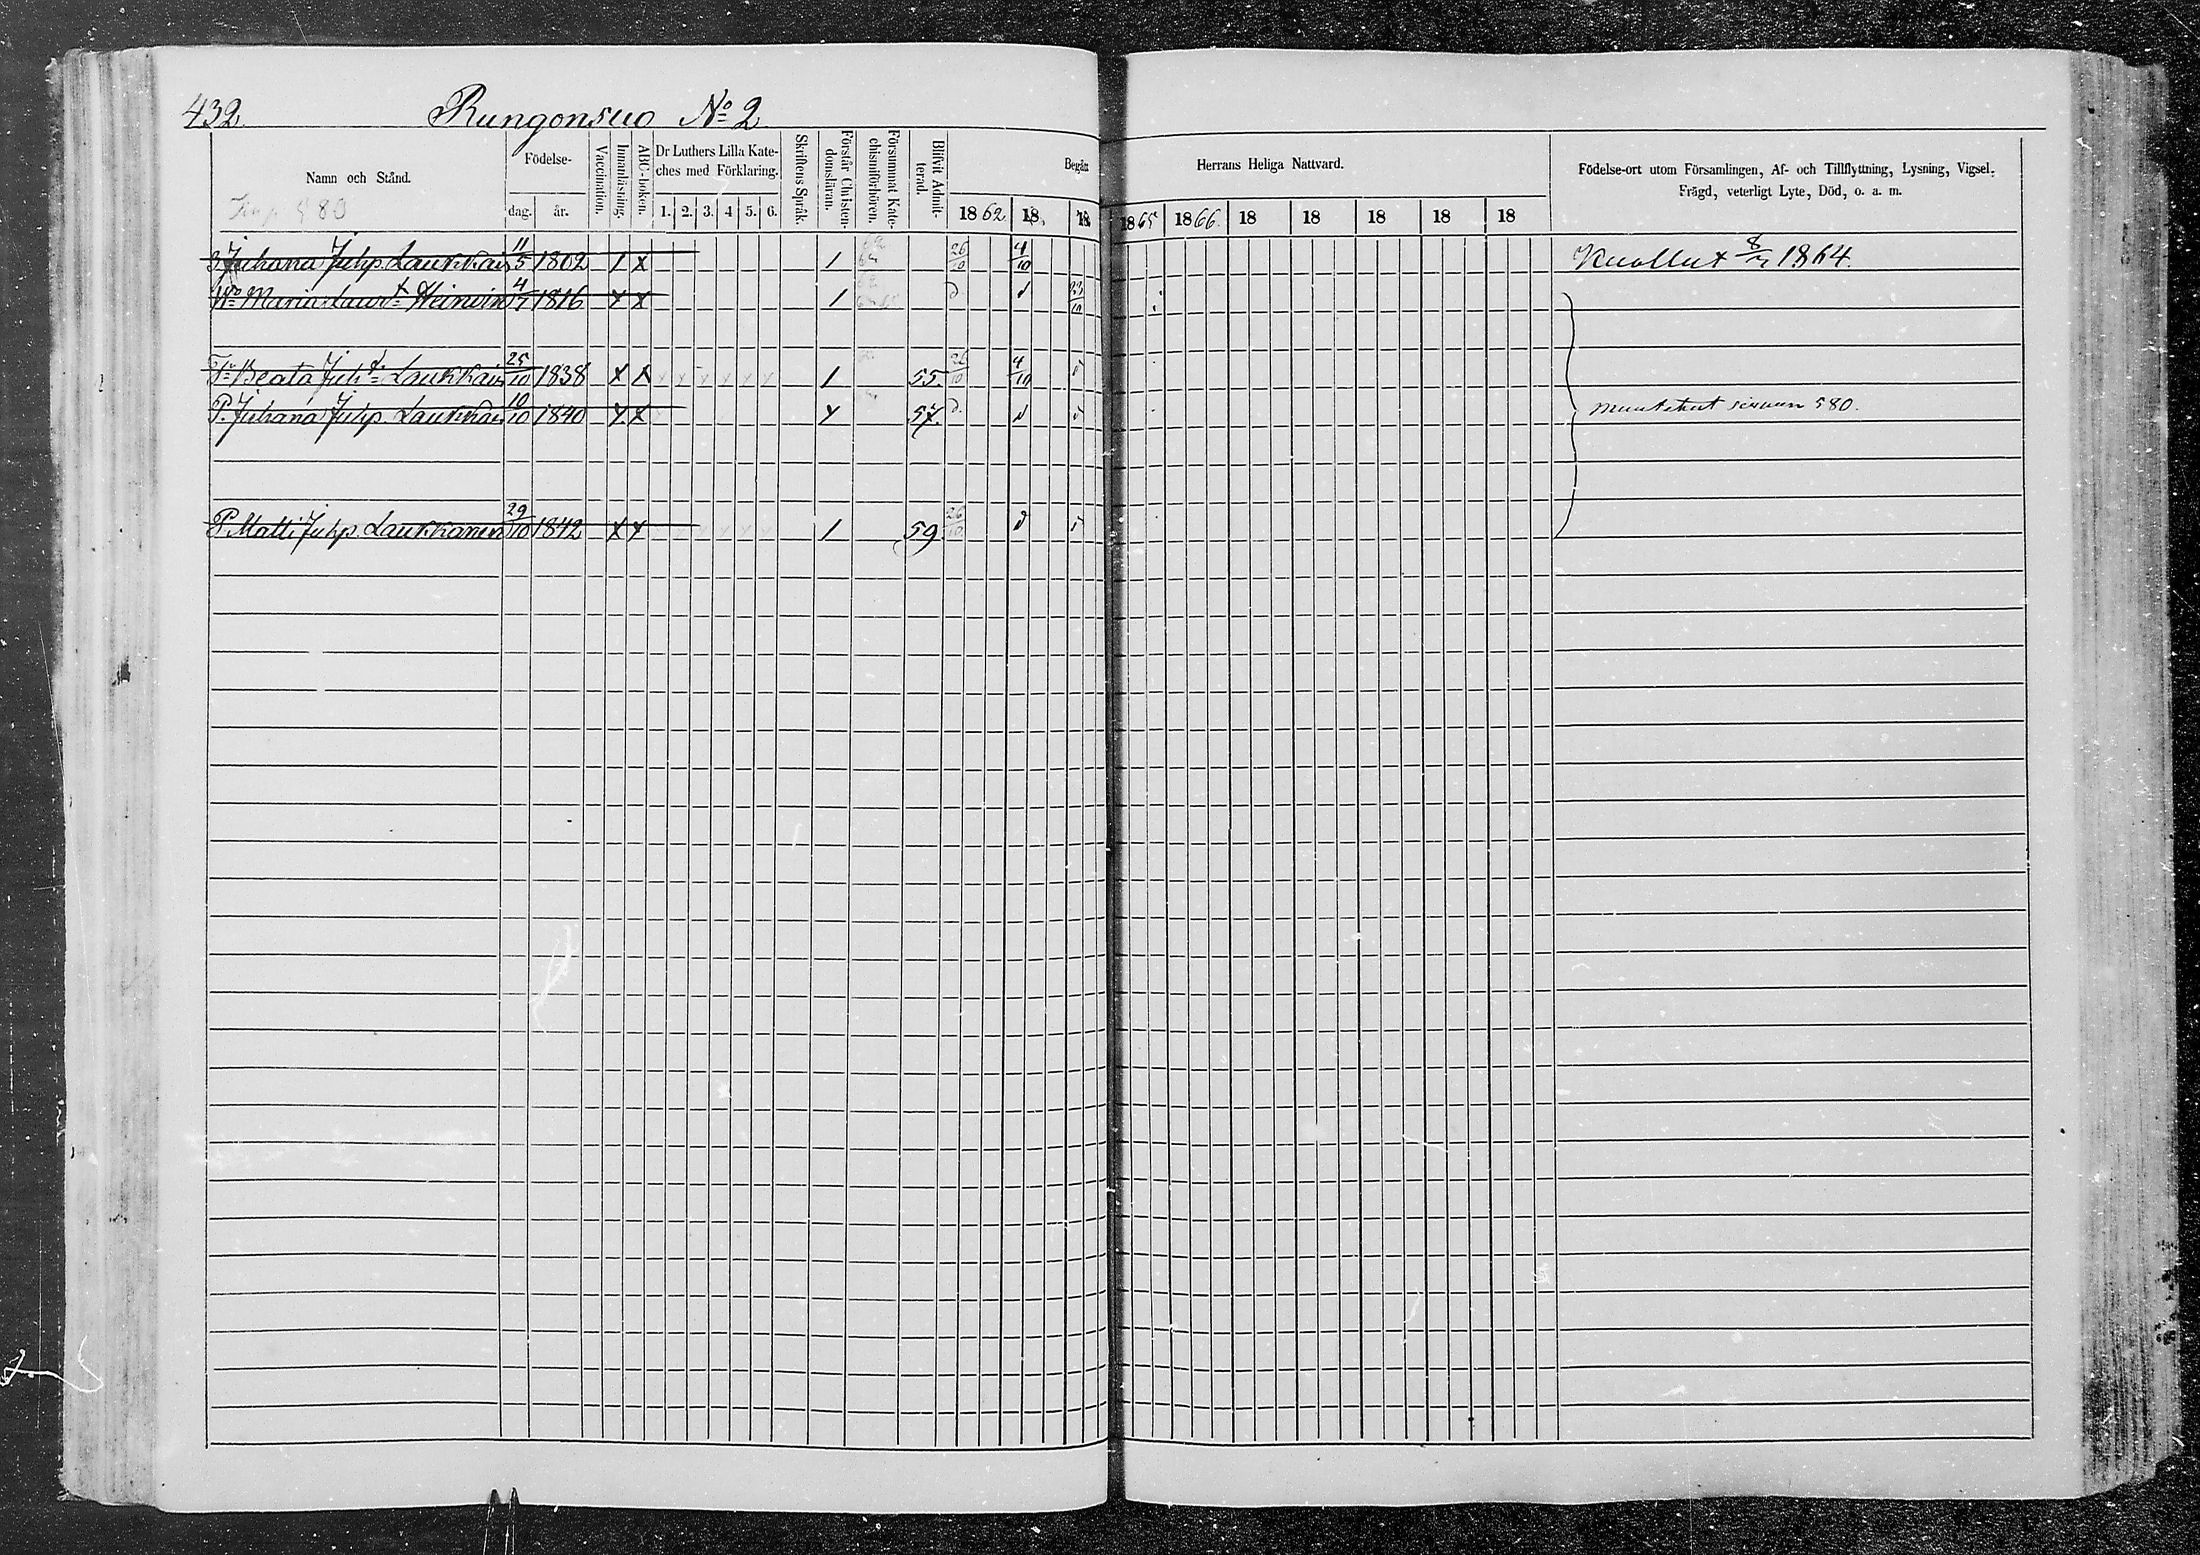 432. Rungonsuo No 2
Namn och Stånd.
Födelse-
dag. år.
Vaccination.
Innanläsning.
ABC-boken.
Dr Luthers Lilla Kate-
ches med Förklaring.
1. 2. 3. 4 5. 6.
Skriftens Språk.
Förstår Christen-
domsläran.
Försummat Kate-
chismiförhören.
Blifvit Admit-
terad.
Begått Herrans Heliga Nattvard.
1862 18 18 1865 1866. 18 18 18 18 18
Födelse-ort utom Församlingen, Af- och Tillflyttning, Lysning, Vigsel,
Frägd, veterligt Lyte, Död, o. a. m.
580
Juhana Juhp. Laukkain 11/5 1802 1 x 1 26/10 4/10 Kuollut 1864.
Maria 4/7 1816 x x 1 d d 23/10
Beata Juhd. Laukkain 25/10 1838 x x x x x x x x 1 55. 26/10 4/10 d
P. Juhana Juhp. Laukkain 10/10 1840 x x x 57. d d d muuttanut sivuun 580.
P. Matti Juhp. Laukkanen 29/10 1842 x x 1 59. 26/10 d d